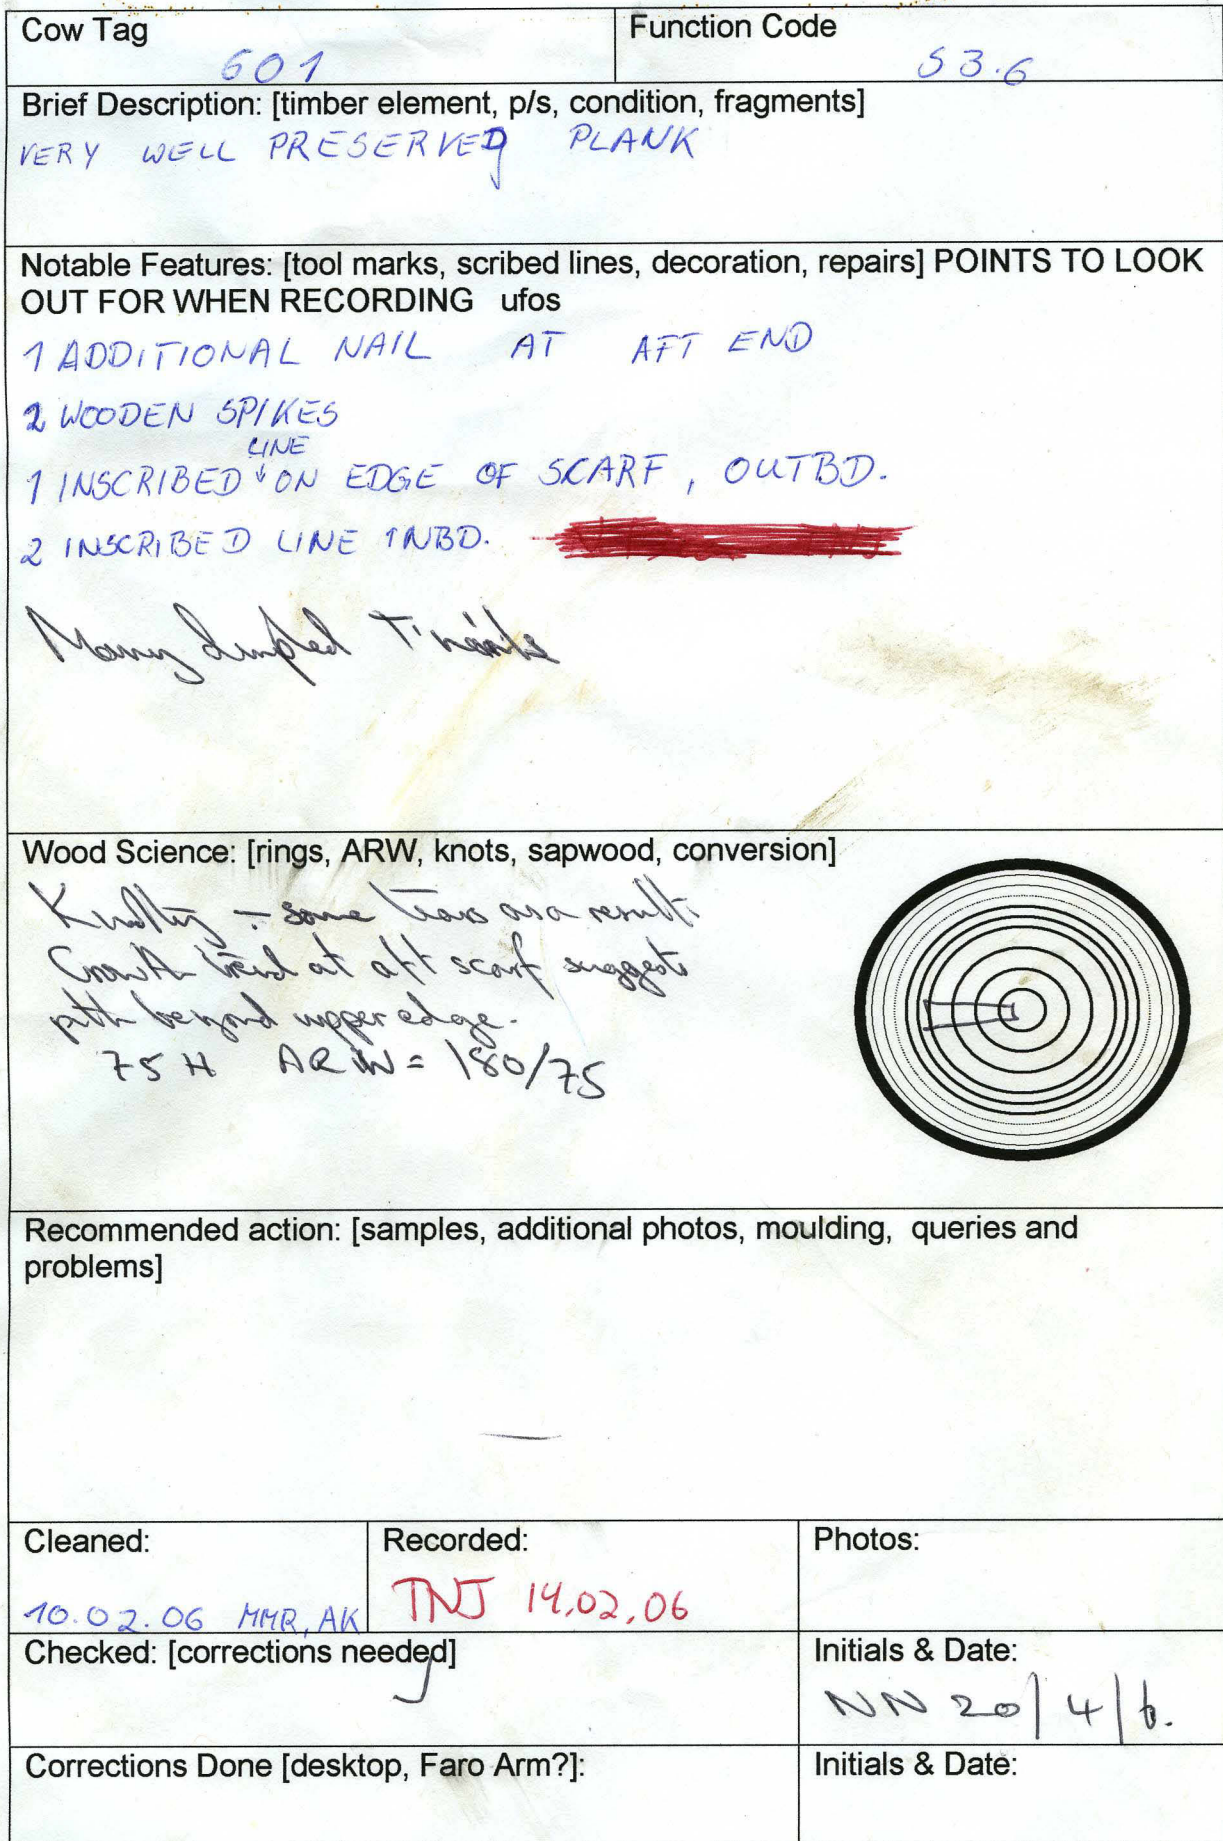 Cow Tag
601
Function Code
S3.6
Brief Description: [timber element, p/s, condition, fragments]
VERY WELL PRESERVED PLANK
Notable Features: [tool marks, scribed lines, decoration, repairs] POINTS TO LOOK
OUT FOR WHEN RECORDING ufos
1 ADDITIONAL NAIL AT AFT END
2 WOODEN SPIKES
LINE
1 INSCRIBED ON EDGE OF SCARF, OUTBD.
2 INSCRIBED LINE INBD.
Many
Wood Science: [rings, ARW, knots, sapwood, conversion]
some as a result
Growth trend at aft scarf suggests
pith beyond upper edge.
75 H ARW = 180/75
Recommended action: [samples, additional photos, moulding, queries and
problems]
Cleaned:
10.02.06 MMR, AK
Recorded:
TNJ 14.02.06
Photos:
Checked: [corrections needed]
Initials & Date:
NN 20/4/6.
Corrections Done [desktop, Faro Arm?]:
Initials & Date: